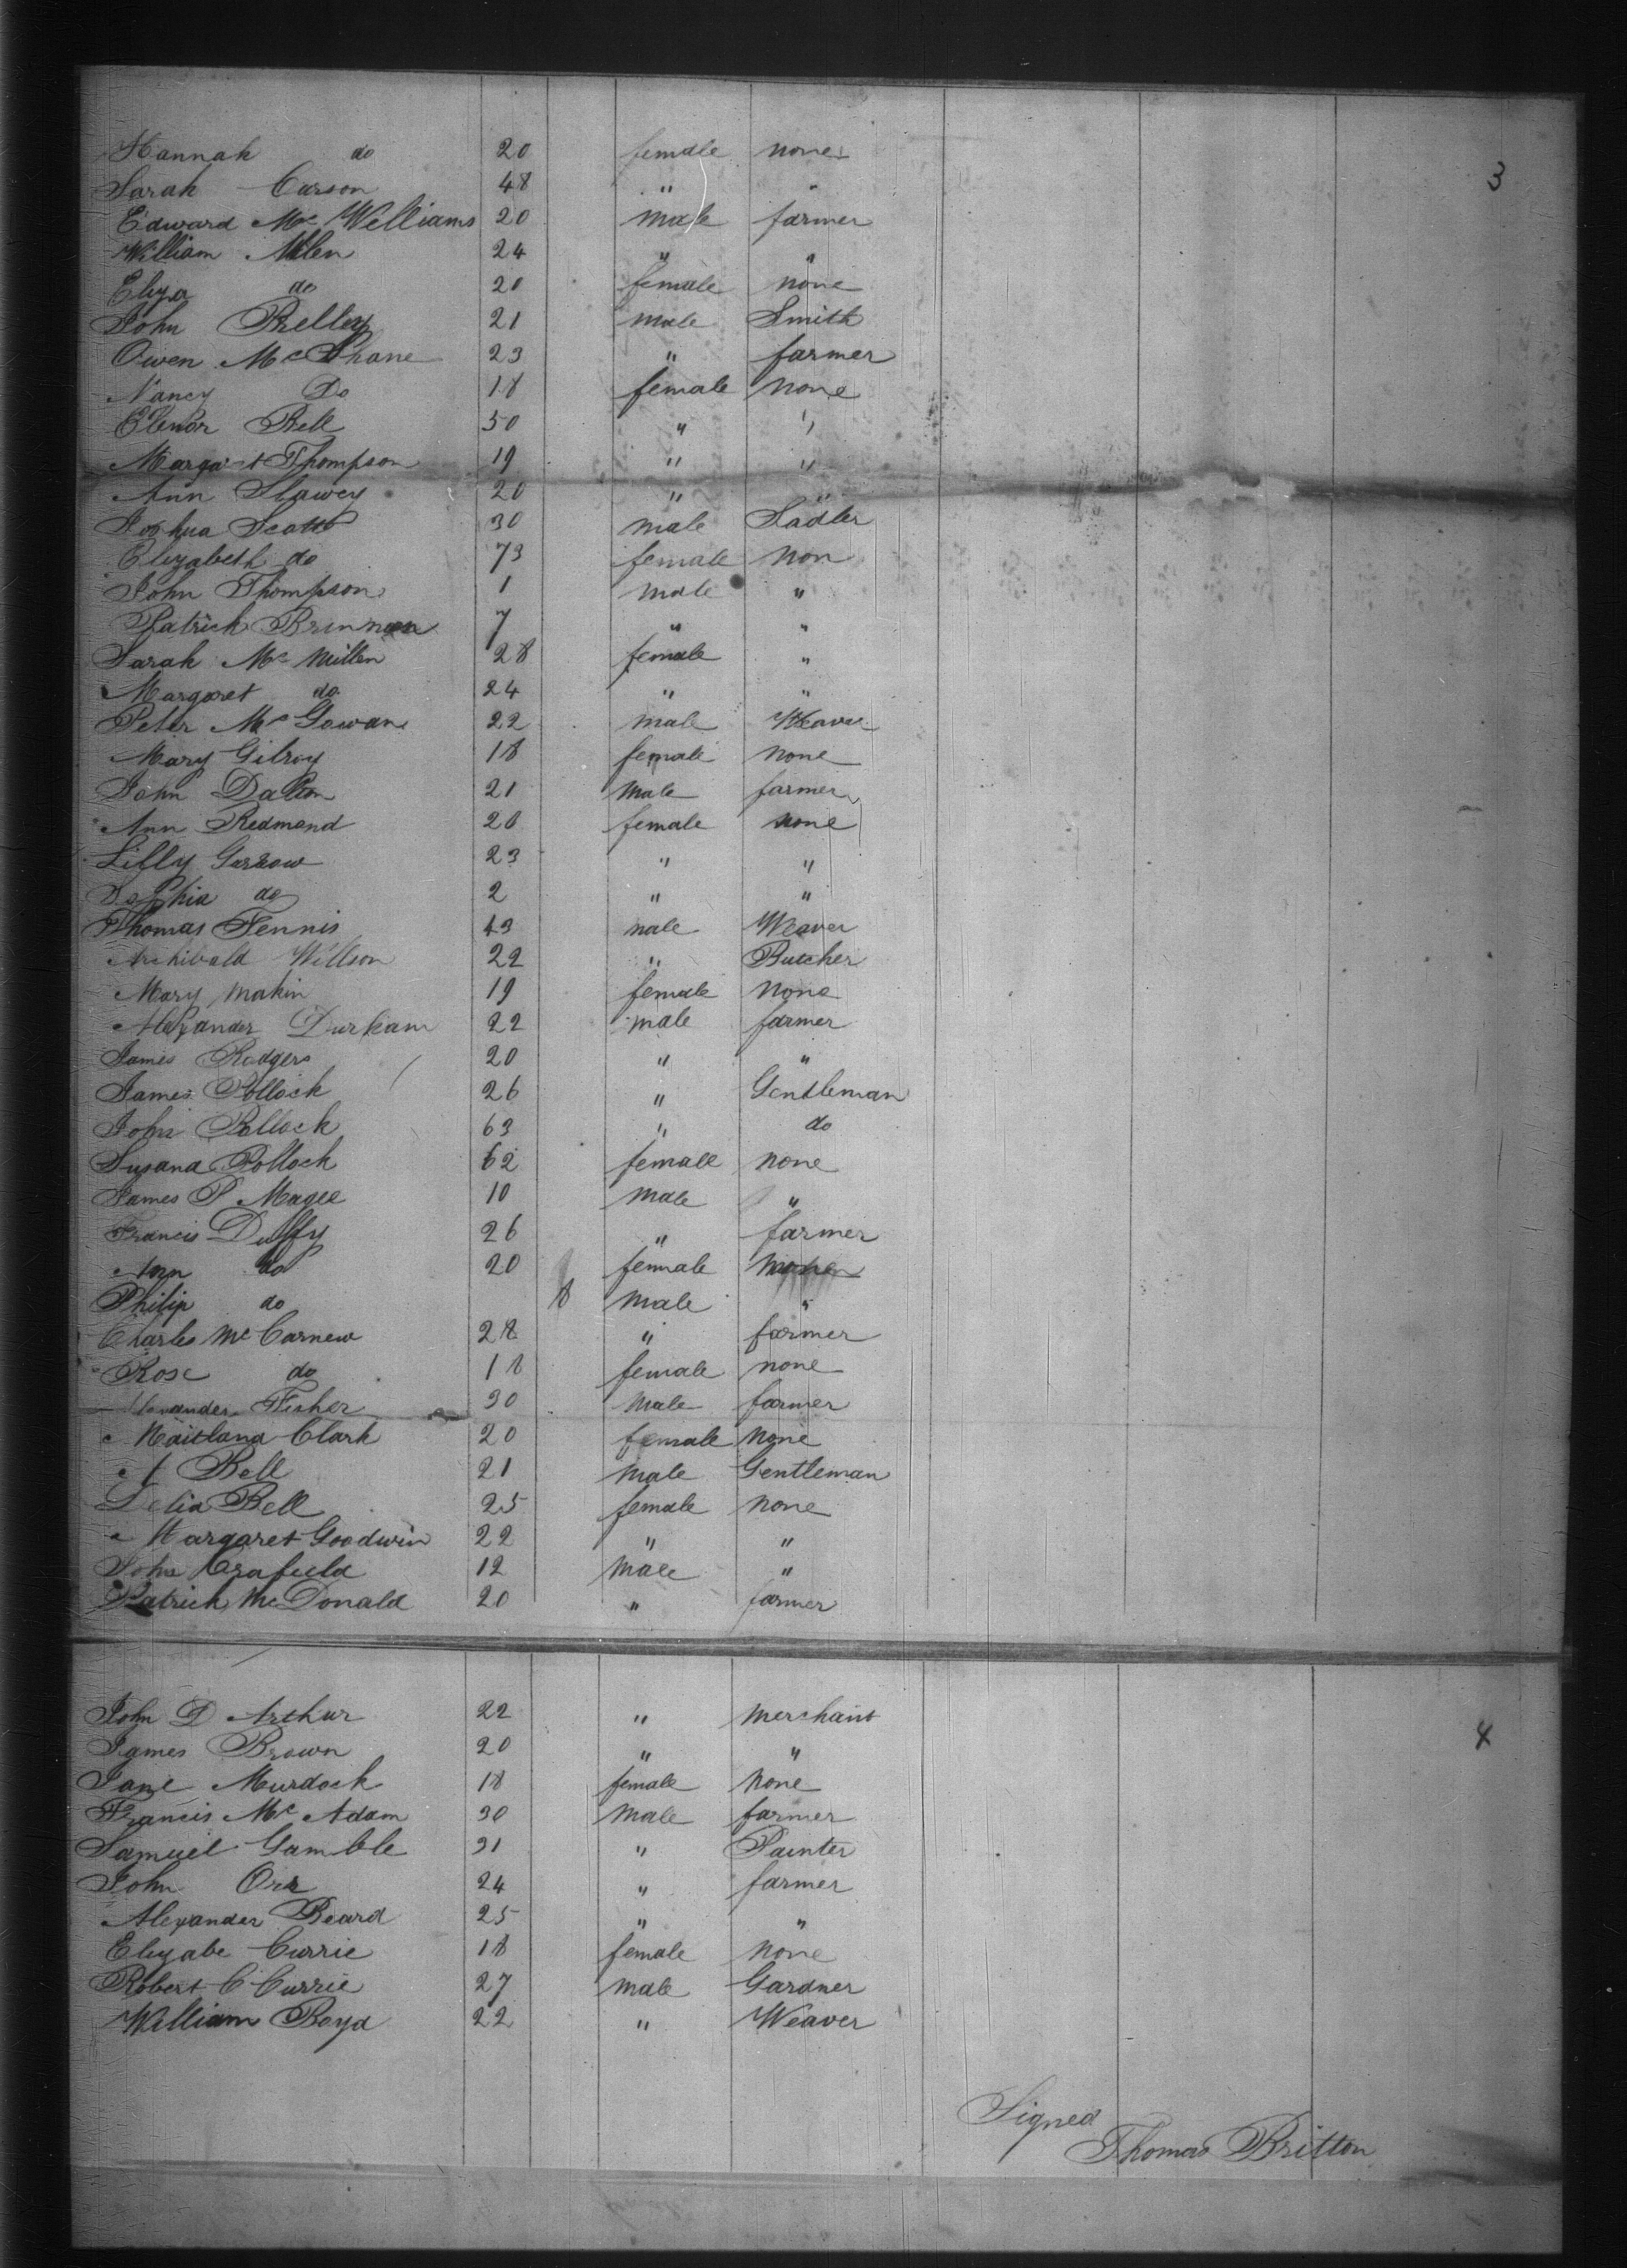 Hannah do 20 female none
3
Sarah Carson 48 " "
Edward Mc Williams 20 male farmer
William Allen 24 " "
Eliza do 20 female none
John Reilley 21 male Smith
Owen Mc Shane 23 " farmer
Nancy Do 18 female none
Elenor Bell 50 " "
Margaret Thompson 19 " "
Ann Slawey 20 " "
Joshua Scott 30 male Sadler
Elizabeth do 73 female non
John Thompson 1 male "
Patrick Brennan 7 " "
Sarah Mc Millen 28 female "
Margaret do 24 " "
Peter Mc Gowan 22 male Weaver
Mary Gilroy 18 female none
John Dalton 21 male farmer
Ann Redmond 20 female none
Lilly Garrow 23 " "
Sophia do 2 " "
Thomas Fennis 43 male Weaver
Archibald Willson 22 " Butcher
Mary Makin 19 female none
Alexander Durham 22 male farmer
James Rodgers 20 " "
James Pollock 26 " Gentleman
John Pollock 63 " do
Susana Pollock 62 female none
James P Magee 10 male "
Francis Duffy 26 " farmer
Ann do 20 female none
Philip do 8 male "
Charles Mc Carnew 28 " farmer
Rose do 18 female none
Alexander Fisher 30 male farmer
Maitland Clark 20 female none
A Bell 21 male Gentleman
Delia Bell 25 female none
Margaret Goodwin 22 " "
John Crafield 12 male "
Patrick Mc Donald 20 " farmer
John D Arthur 22 " merchant
4
James Brown 20 " "
Jane Murdock 18 female none
Francis Mc Adam 30 male farmer
Samuel Gamble 31 " Painter
John Orr 24 " farmer
Alexander Beard 25 " "
Elizabe Currie 18 female none
Robert C Currie 27 male Gardner
William Boyd 22 " Weaver
Signed
Thomas Britton